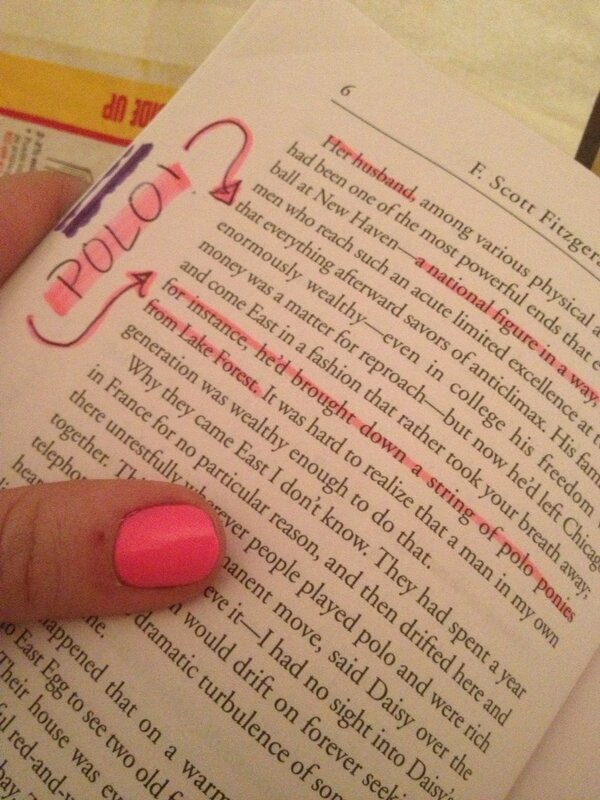 6
F. Scott Fitzgera
Her husband, among various physical a
had been one of the most powerful ends that e
ball at New Haven—a national figure in a way,
men who reach such an acute limited excellence at t
that everything afterward savors of anticlimax. His fam
enormously wealthy—even in college his freedom
money was a matter for reproach—but now he'd left Chicag
and come East in a fashion that rather took your breath away;
for instance, he'd brought down a string of polo ponies
from Lake Forest. It was hard to realize that a man in my own
generation was wealthy enough to do that.
Why they came East I don't know. They had spent a year
in France for no particular reason, and then drifted here and
there unrestfully wherever people played polo and were rich
together. Thi manent move, said Daisy over the
telephon eve it—I had no sight into Daisy's
hear would drift on forever seeki
dramatic turbulence of som
ne.
happened that on a warm
to East Egg to see two old f
Their house was eve
ful red-and-w
bay. T
POLO!
IDE UP